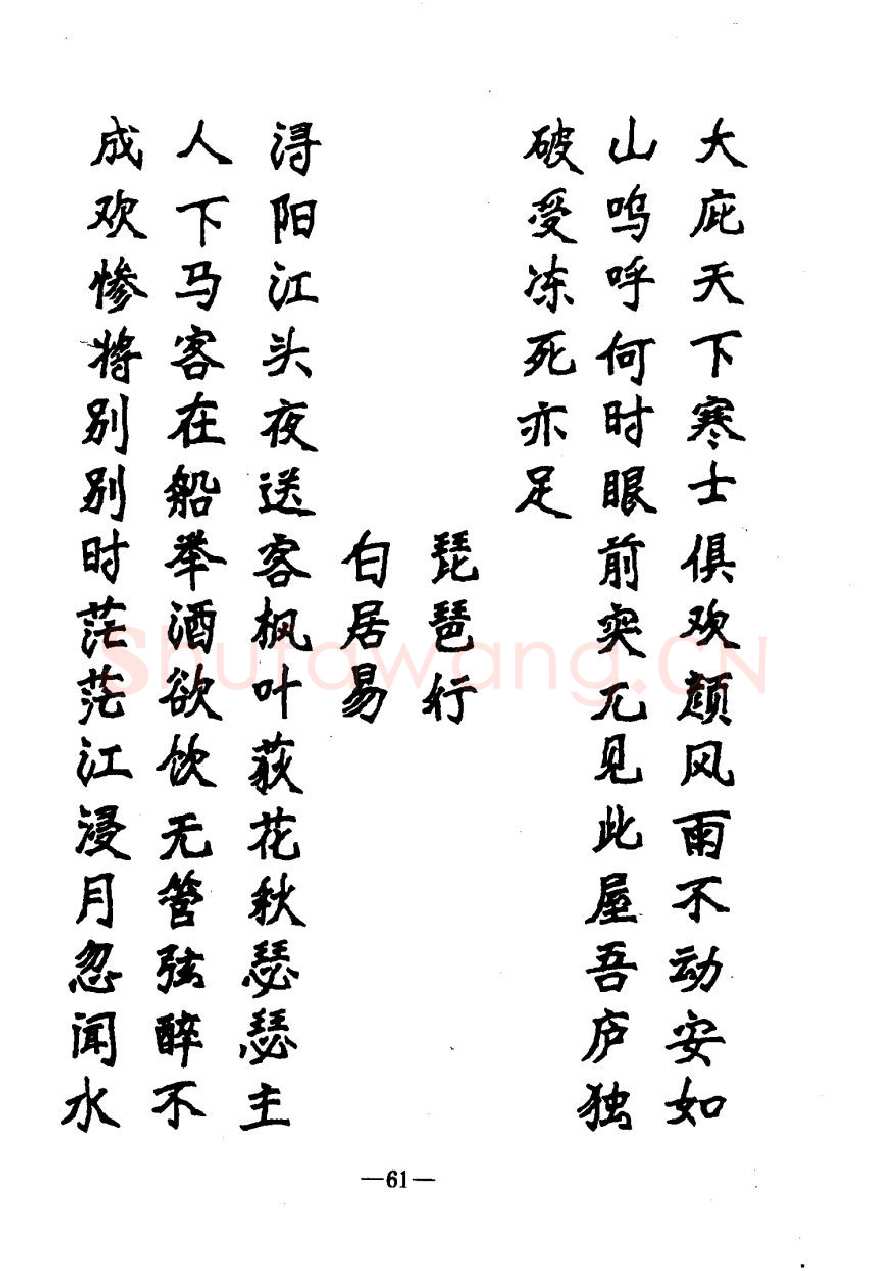 大庇天下寒士俱欢颜风雨不动安如
山呜呼何时眼前突兀见此屋吾庐独
破受冻死亦足
琵琶行
白居易
浔阳江头夜送客枫叶荻花秋瑟瑟主
人下马客在船举酒欲饮无管弦醉不
成欢惨将别别时茫茫江浸月忽闻水
—61—
Shufawang.CN